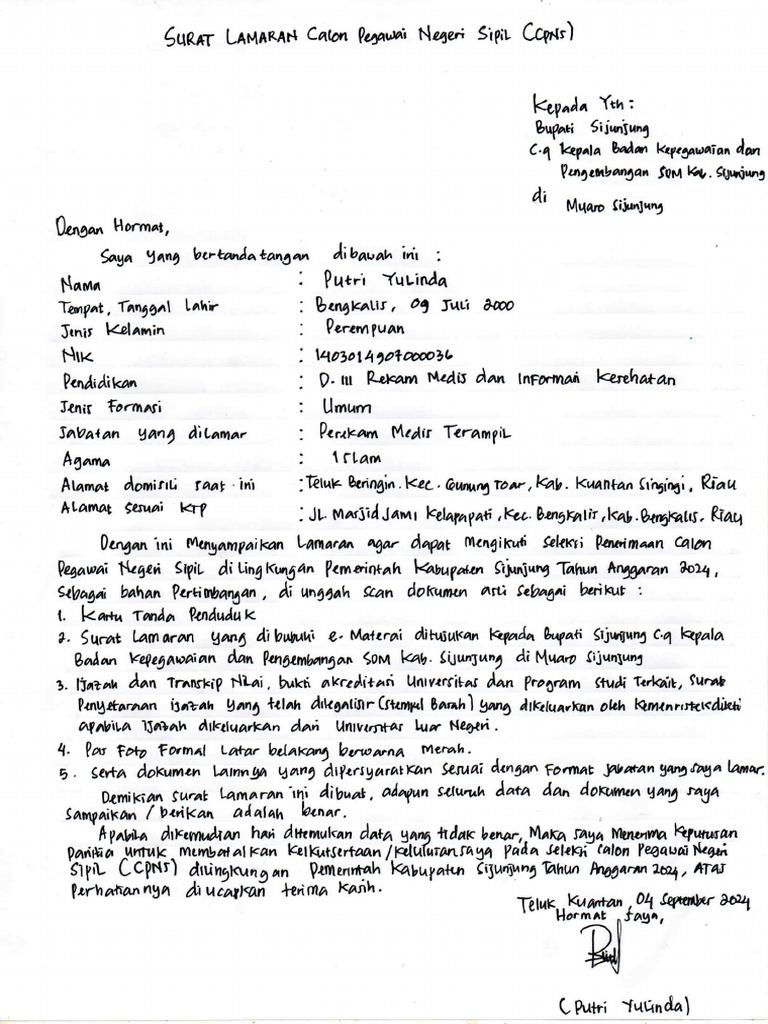 SURAT LAMARAN Calon Pegawai Negeri Sipil (CPNS)
Kepada Yth :
Bupati Sijunjung
C.q Kepala Badan Kepegawaian dan
Pengembangan SDM Kab. Sijunjung
di
Muaro Sijunjung
Dengan Hormat,
Saya yang bertandatangan dibawah ini :
Nama : Putri Yulinda
Tempat, Tanggal Lahir : Bengkalis, 09 Juli 2000
Jenis Kelamin : Perempuan
NIK : 1403014907000036
Pendidikan : D-III Rekam Medis dan Informasi Kesehatan
Jenis Formasi : Umum
Jabatan yang dilamar : Perekam Medis Terampil
Agama : Islam
Alamat domisili saat ini : Teluk Beringin. Kec. Gunung Toar, Kab. Kuantan Singingi, Riau
Alamat sesuai KTP : JL. Masjid Jami Kelapapati, Kec. Bengkalis, Kab. Bengkalis, Riau
Dengan ini Menyampaikan Lamaran agar dapat Mengikuti Seleksi Penerimaan Calon
Pegawai Negeri Sipil di Lingkungan Pemerintah Kabupaten Sijunjung Tahun Anggaran 2024,
Sebagai bahan Pertimbangan, di unggah scan dokumen asli sebagai berikut :
1. Kartu Tanda Penduduk
2. Surat Lamaran yang dibubuhi e-Materai ditujukan Kepada Bupati Sijunjung C.q Kepala
Badan Kepegawaian dan Pengembangan SDM Kab. Sijunjung di Muaro Sijunjung
3. Ijazah dan Transkip Nilai, bukti akreditasi Universitas dan Program Studi Terkait, Surat
Penyetaraan ijazah yang telah dilegalisir (Stempel Basah) yang dikeluarkan oleh Kemenristekdikti
apabila Ijazah dikeluarkan dari Universitas Luar Negeri.
4. Pas Foto Formal Latar belakang berwarna Merah.
5. Serta dokumen Lainnya yang dipersyaratkan Sesuai dengan Format jabatan yang saya Lamar.
Demikian surat Lamaran ini dibuat, adapun seluruh data dan dokumen yang saya
sampaikan / berikan adalah benar.
Apabila dikemudian hari ditemukan data yang tidak benar, Maka saya Menerima Keputusan
Panitia untuk membatalkan keikutsertaan/kelulusan saya pada seleksi Calon Pegawai Negeri
Sipil (CPNS) dilingkungan Pemerintah Kabupaten Sijunjung Tahun Anggaran 2024, ATAS
Perhatiannya diucapkan terima kasih.
Teluk Kuantan, 04 September 2024
Hormat Saya,
(Putri Yulinda)